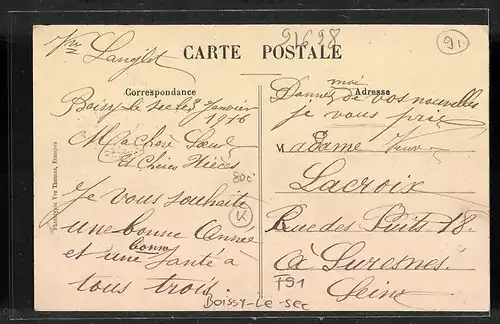 Vve Langlet
91698
91
CARTE POSTALE
Correspondance
Adresse
Boissy le sec le 8 Janvier
1916
Ma chère Sœur
et Chères Nièces
80c
Je vous souhaite
K
une bonne Année
et une bonne Santé à
tous trois.
Donnez moi de vos nouvelles
je vous prie
Madame Veuve
Lacroix
Rue des Puits 18.
à Suresnes.
F91
Seine
BOISSY-LE-SEC
Vve Thomas, Etampes